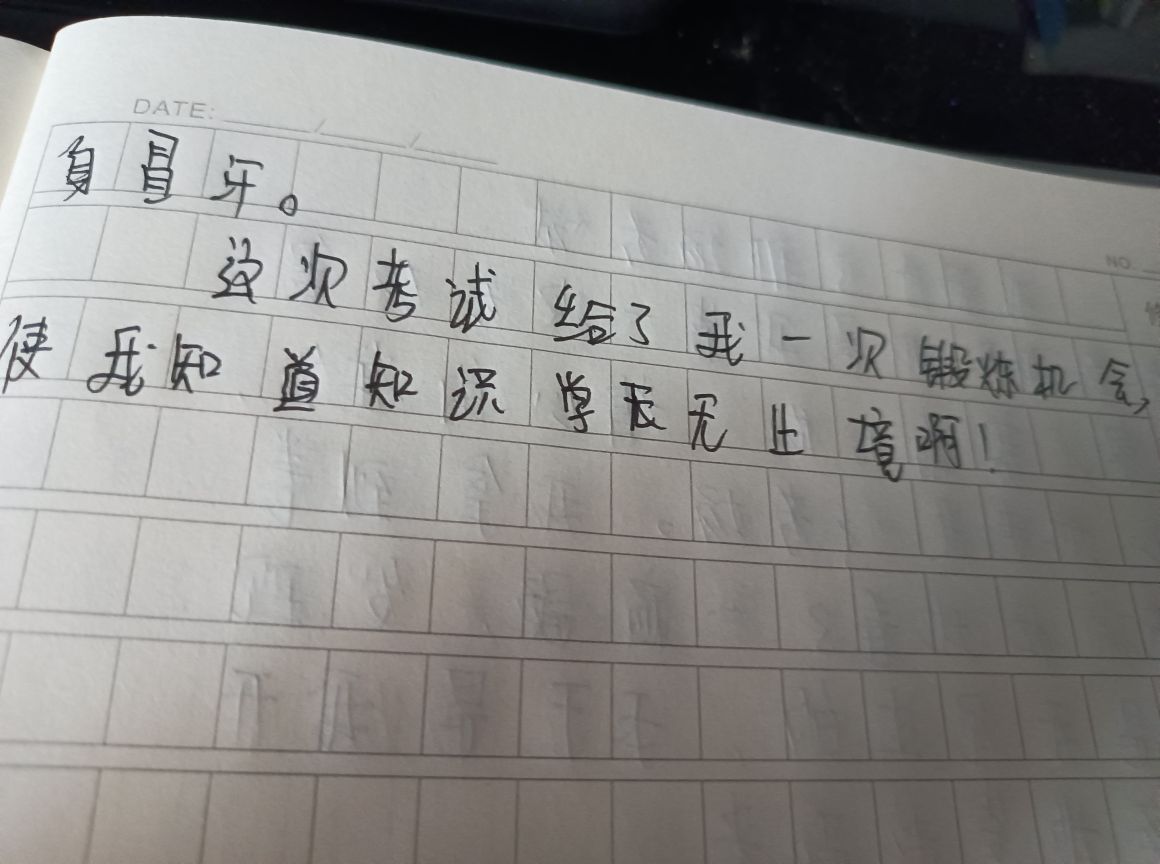 DATE: / /
NO.
牙。
这次考试给了我一次锻炼机会,
使我知道知识学无止境啊!